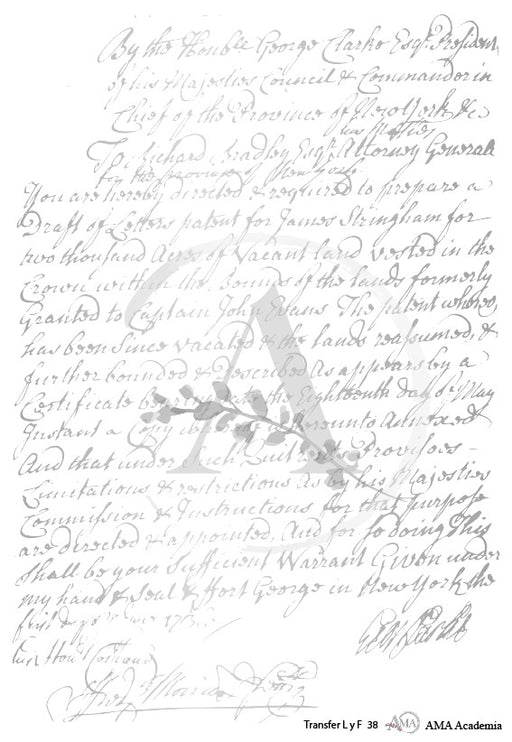 By the Honble George Clarke Esqr. President
of his Majesties Council & Commander in
Chief of the Province of New York &c
To Richard Bradley Esqr. his Matties Attorney Generall
for the province of New York.
You are hereby directed & required to prepare a
Draft of Letters patent for James Stringham for
two thousand Acres of Vacant land vested in the
Crown within the bounds of the lands formerly
Granted to Captain John Evans The patent whereof
has been since vacated & the lands reassumed, &
further bounded & Described As appears by a
Certificate bearing date the Eighteenth day of May
Instant a Copy whereof is hereunto Annexed
And that under such Quitrents Provisoes -
Limitations & restrictions As by his Majesties
Commission & Instructions for that purpose
are directed & appointed, And for so doing This
shall be your Sufficient Warrant Given under
my hand & Seal at Ffort George in New York the
first day of
Geo Clarke
A
Transfer L y F 38 AMA AMA Academia